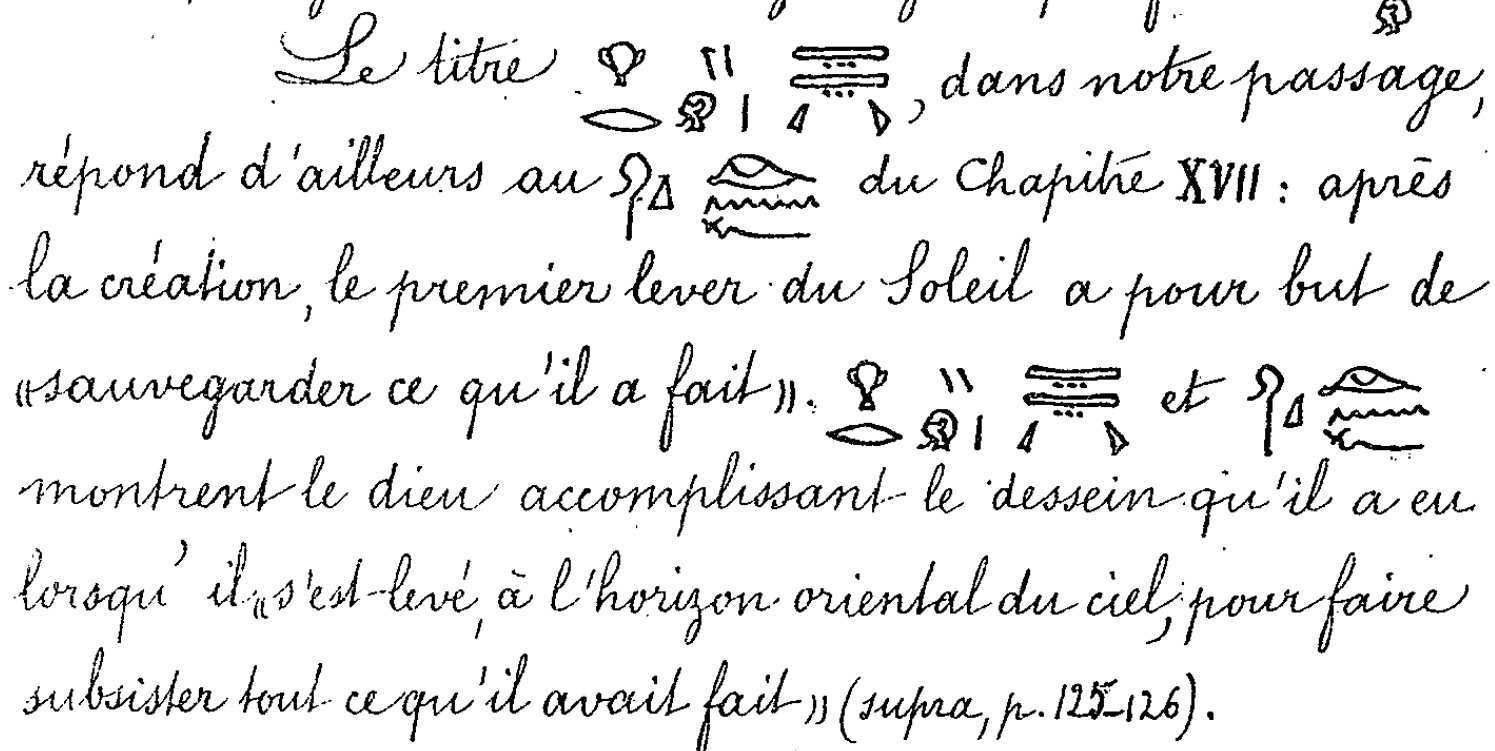 Le titre , dans notre passage,
répond d'ailleurs au du Chapitre XVII : après
la création, le premier lever du Soleil a pour but de
«sauvegarder ce qu'il a fait». et
montrent le dieu accomplissant le dessein qu'il a eu
lorsqu'il «s'est levé, à l'horizon oriental du ciel, pour faire
subsister tout ce qu'il avait fait» (supra, p. 125-126).